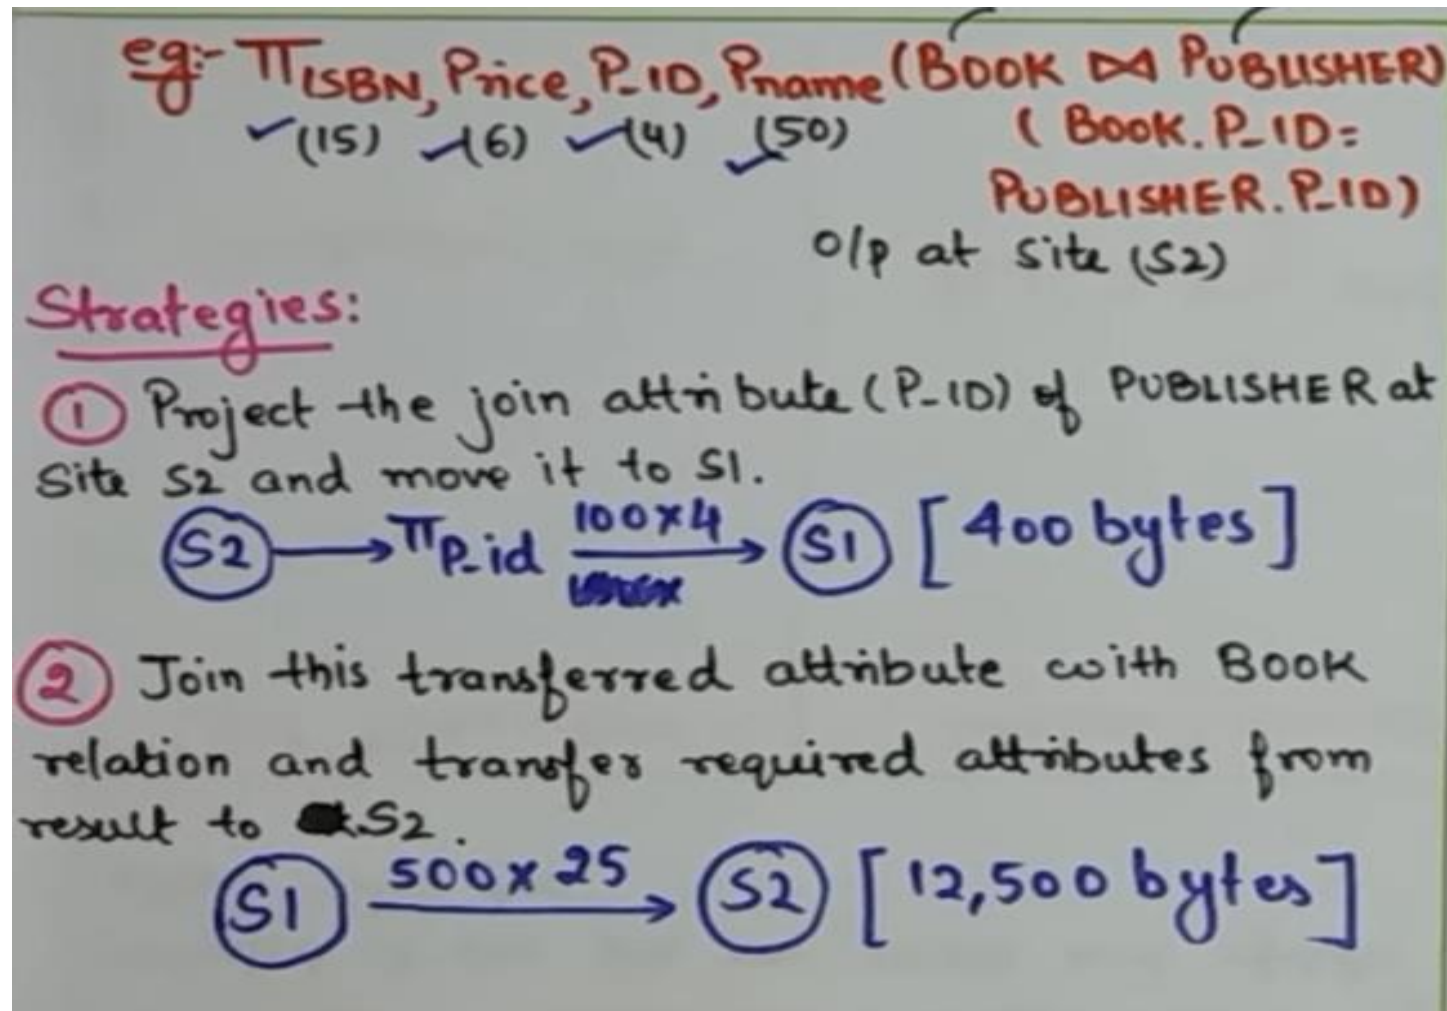 eg:- π ISBN, Price, P_ID, Pname (BOOK ⋈ PUBLISHER)
(15) (6) (4) (50) (BOOK.P_ID=
PUBLISHER.P_ID)
O/p at site (S2)
Strategies:
① Project the join attribute (P_ID) of PUBLISHER at
Site S2 and move it to S1.
S2 → π P_id 100×4 → S1 [400 bytes]
② Join this transferred attribute with BOOK
relation and transfer required attributes from
result to S2.
S1 500×25 → S2 [12,500 bytes]